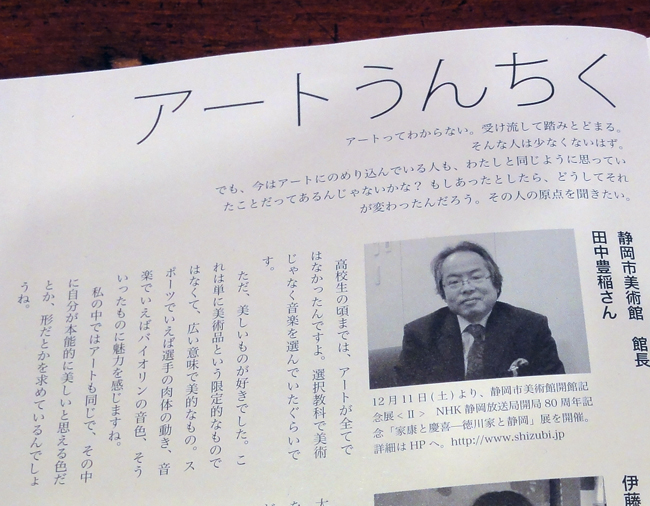 アートうんちく
アートってわからない。受け流して踏みとどまる。
そんな人は少なくないはず。
でも、今はアートにのめり込んでいる人も、わたしと同じように思ってい
たことだってあるんじゃないかな？ もしあったとしたら、どうしてそれ
が変わったんだろう。その人の原点を聞きたい。
静岡市美術館 館長
田中豊稲さん
12月11日(土)より、静岡市美術館開館記
念展＜Ⅱ＞ NHK静岡放送局開局80周年記
念「家康と慶喜―徳川家と静岡」展を開催。
詳細はHPへ。http://www.shizubi.jp
高校生の頃までは、アートが全てで
はなかったんですよ。選択教科で美術
じゃなく音楽を選んでいたぐらいで
す。
ただ、美しいものが好きでした。こ
れは単に美術品という限定的なもので
はなくて、広い意味で美的なもの。ス
ポーツでいえば選手の肉体の動き、音
楽でいえばバイオリンの音色、そう
いったものに魅力を感じますね。
私の中ではアートも同じで、その中
に自分が本能的に美しいと思える色だ
とか、形だとかを求めているんでしょ
うね。
伊藤